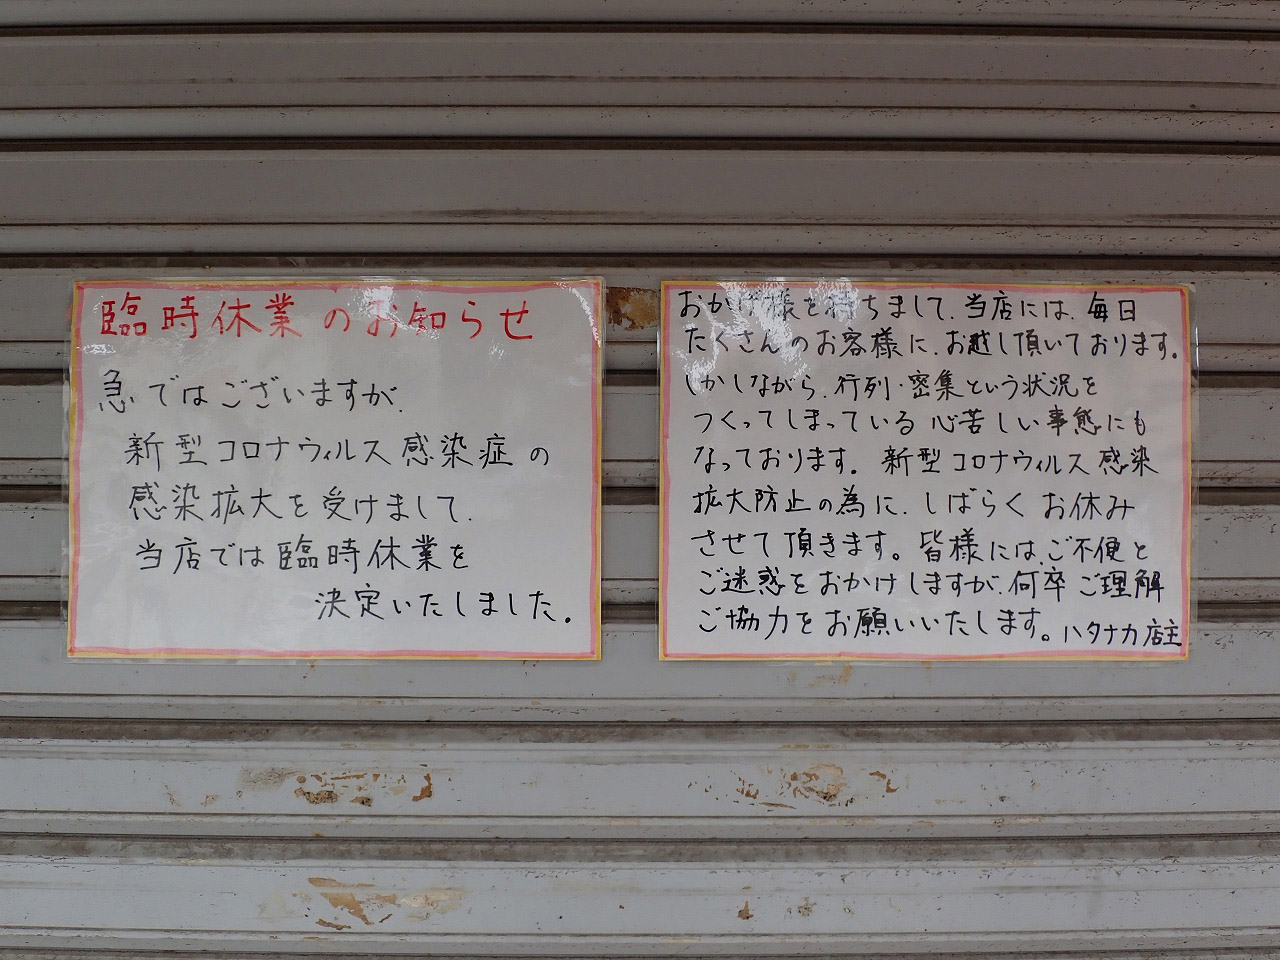 臨時休業のお知らせ
急ではございますが、
新型コロナウィルス感染症の
感染拡大を受けまして、
当店では臨時休業を
決定いたしました。
おかげ様を持ちまして、当店には、毎日
たくさんのお客様に、お越し頂いております。
しかしながら、行列・密集という状況を
つくってしまっている心苦しい事態にも
なっております。新型コロナウィルス感染
拡大防止の為に、しばらくお休み
させて頂きます。皆様には、ご不便と
ご迷惑をおかけしますが、何卒ご理解
ご協力をお願いいたします。ハタナカ店主